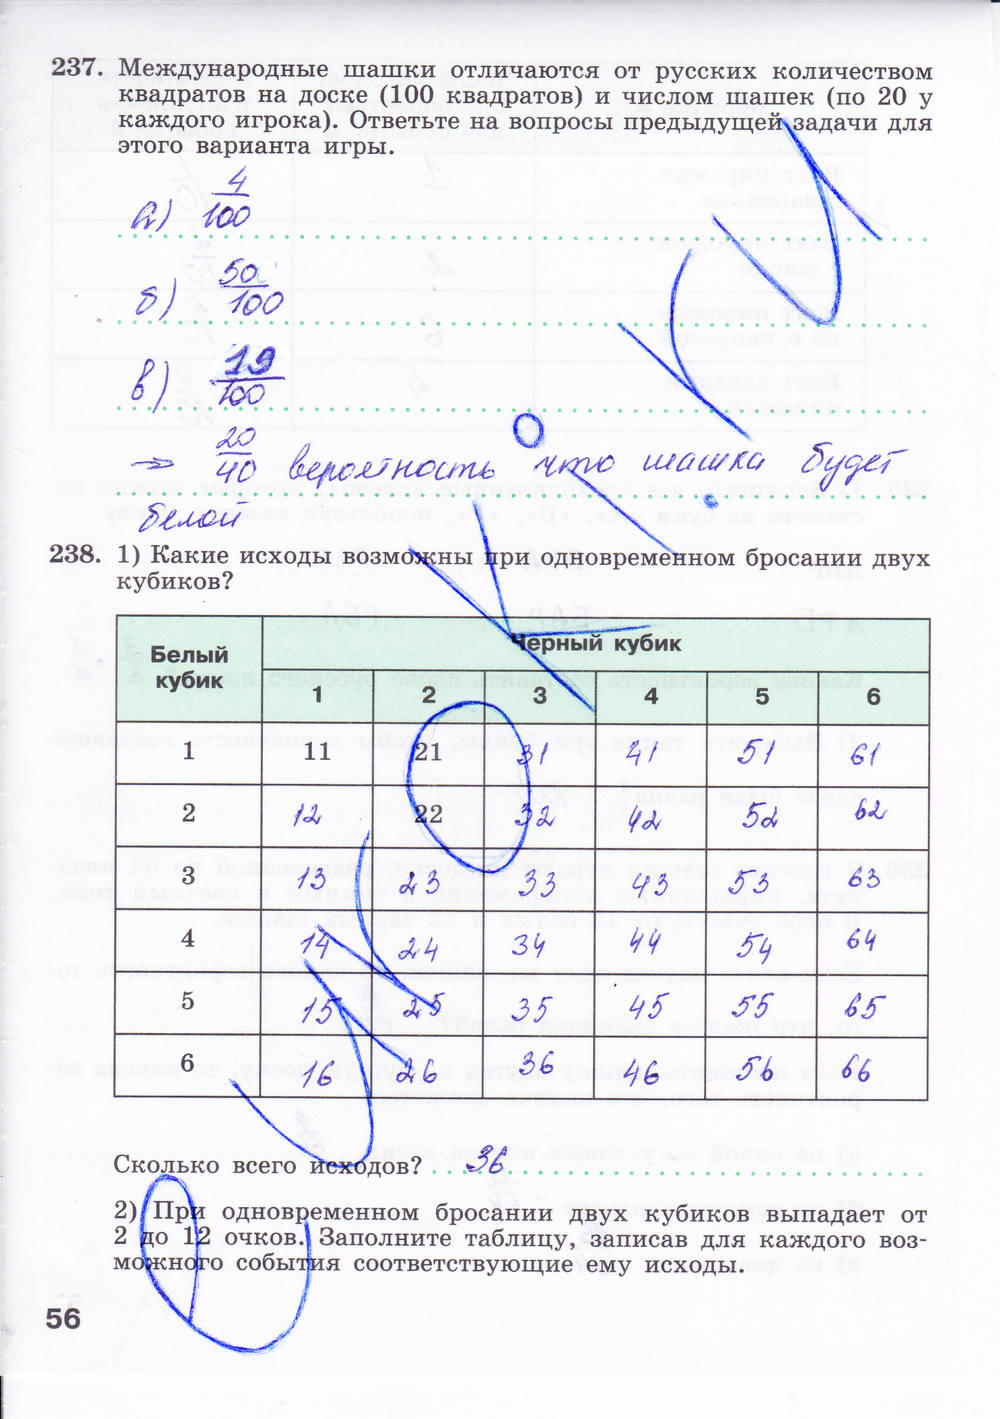 237. Международные шашки отличаются от русских количеством
квадратов на доске (100 квадратов) и числом шашек (по 20 у
каждого игрока). Ответьте на вопросы предыдущей задачи для
этого варианта игры.
а) 4/100
б) 50/100
в) 19/100
→ 20/40 вероятность что шашка будет
белой
238. 1) Какие исходы возможны при одновременном бросании двух
кубиков?
Белый кубик Черный кубик
1 2 3 4 5 6
1 11 21 31 41 51 61
2 12 22 32 42 52 62
3 13 23 33 43 53 63
4 14 24 34 44 54 64
5 15 25 35 45 55 65
6 16 26 36 46 56 66
Сколько всего исходов? 36
2) При одновременном бросании двух кубиков выпадает от
2 до 12 очков. Заполните таблицу, записав для каждого воз-
можного события соответствующие ему исходы.
56